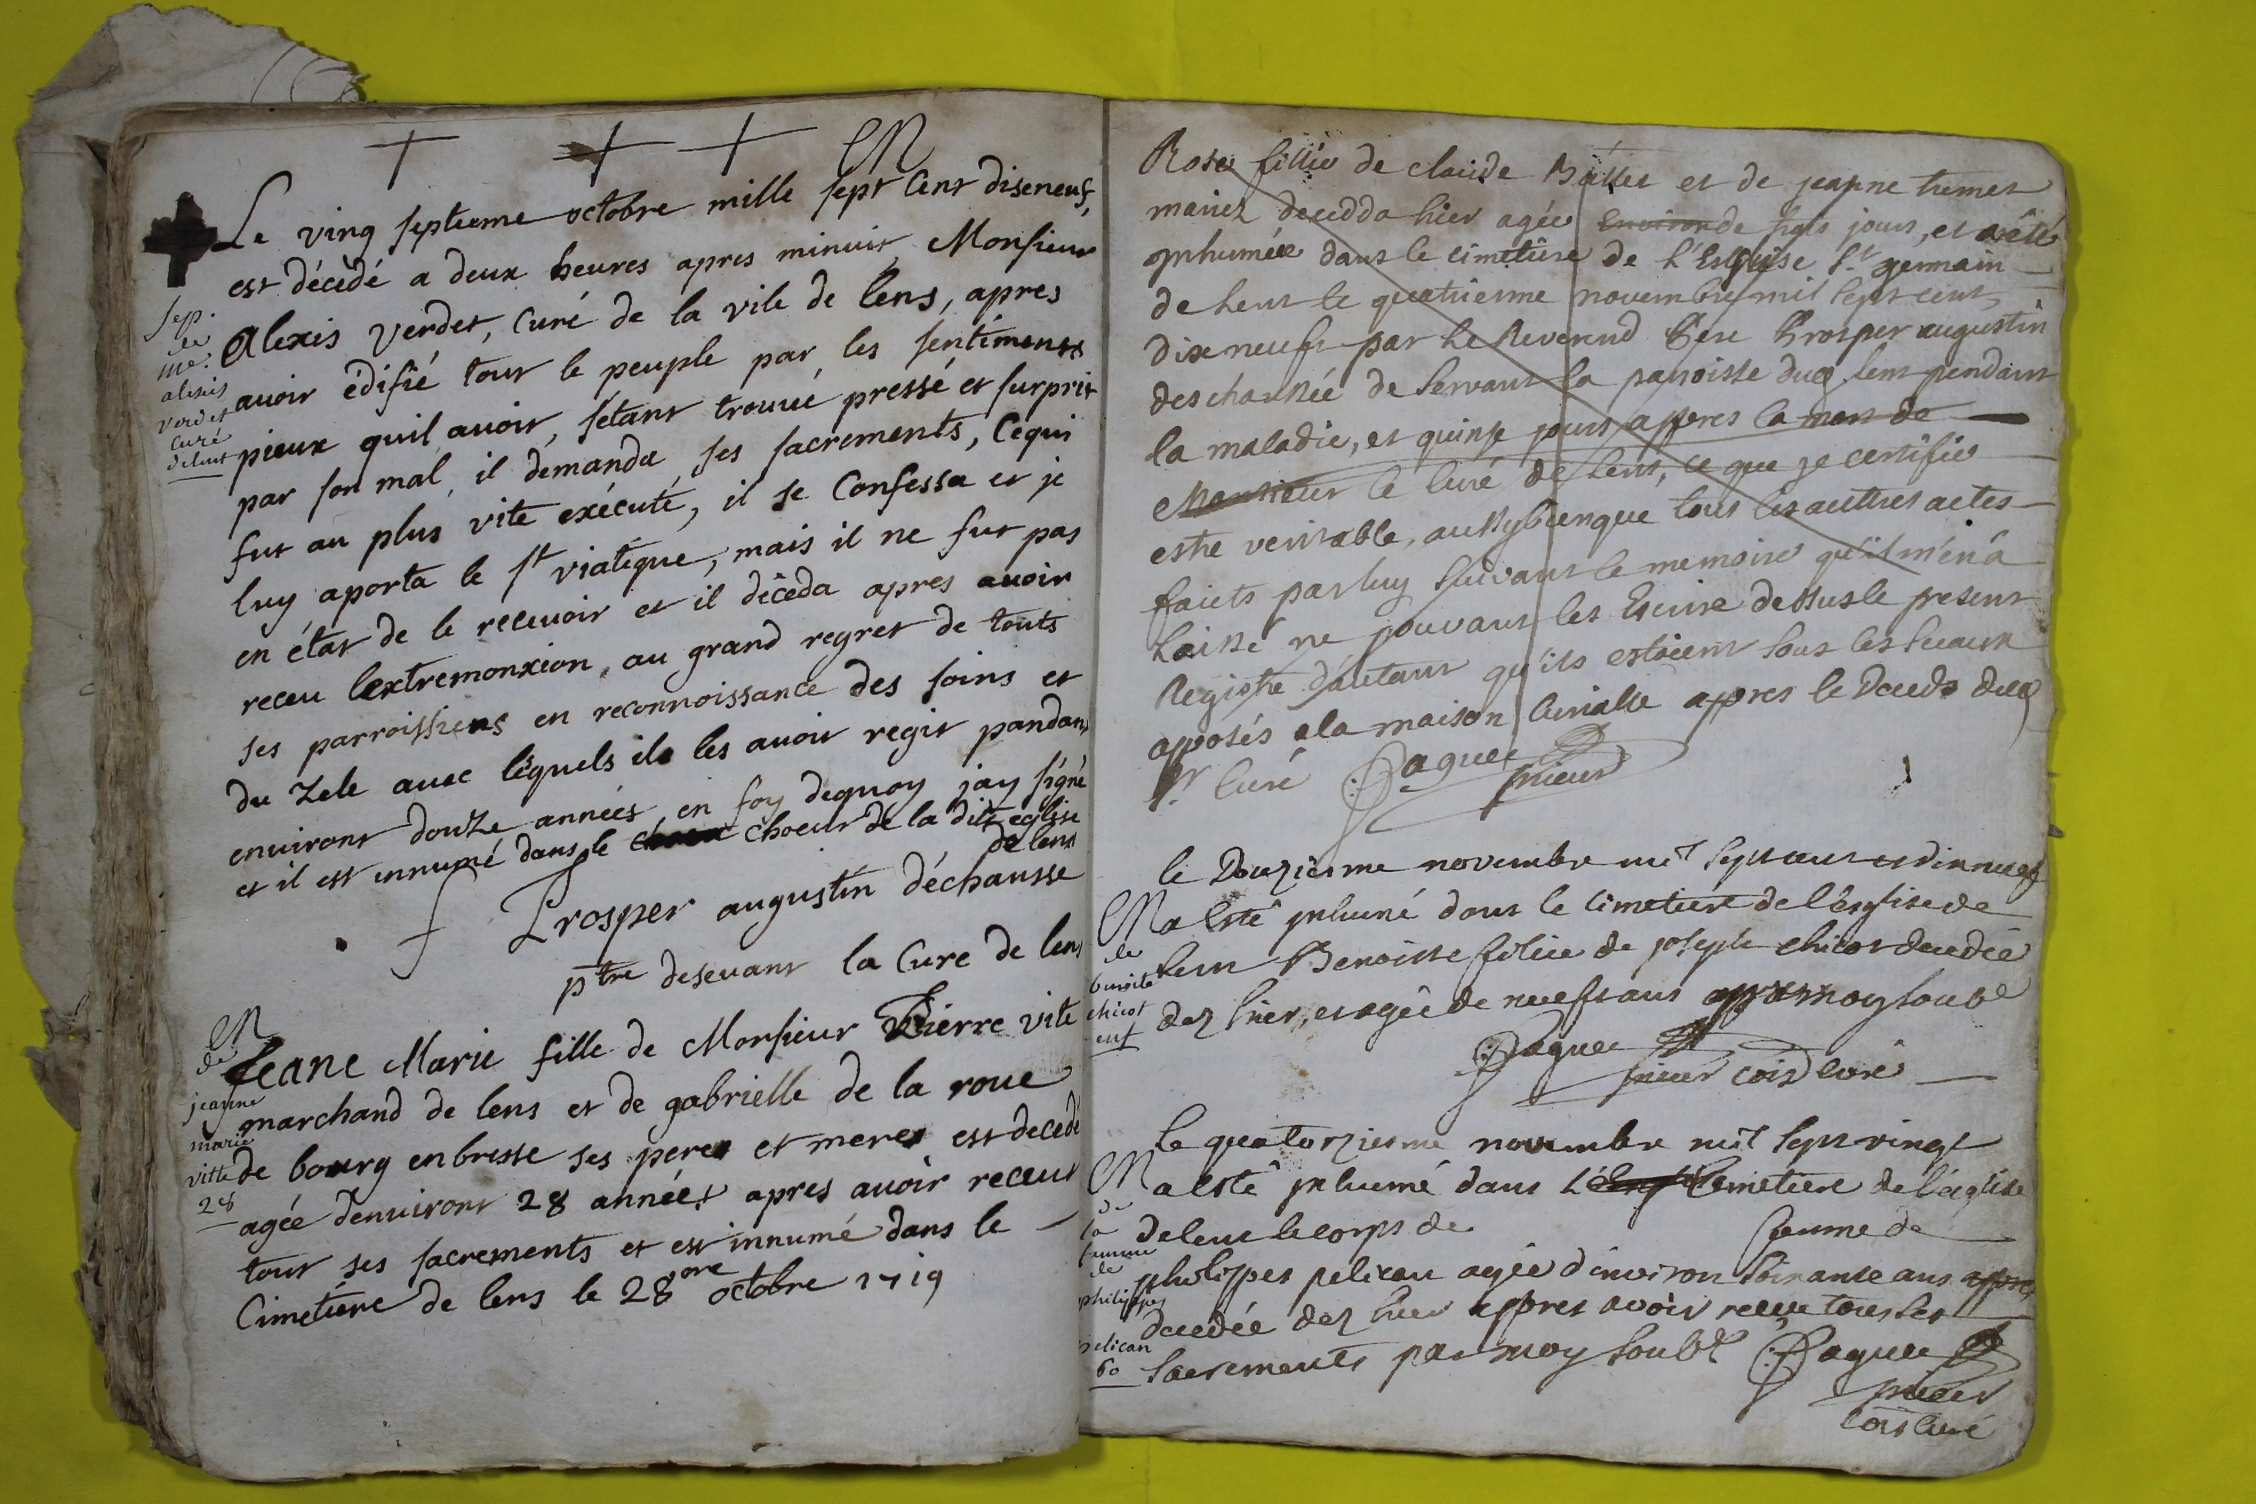 M
Le ving septieme octobre mille sept Cent diseneuf,
est décèdé a deux heures apres minuit, Monsieur
Alexis verdet, Curé de la vile de lens, apres
avoir èdifié tout le peuple par les sentiments
pieux quil avoit, setant trouvé pressé et surprit
par son mal, il demanda ses sacrements, Cequi
fut au plus vite exécuté, il se Confessa et je
luy aporta le st viatique, mais il ne fut pas
en état de le recevoir et il dècèda apres avoir
receu lextremonxion, au grand regret de touts
ses parroissiens en reconnoissance des soins et
du zele avec lèquels ils les avoit regit pandant
environt douze années, en foy dequoy jay signé
et il est innumé dans le choeur de la dite eglise
de lens
Prosper augustin déchausse
ptre desevant la Cure de lens
sep.
de
me.
alexis
verdet
Curé
de lent
M
de
jeanne
marie
vitte
28
Jeane Marie fille de Monsieur Pierre vite
marchand de lens et de gabrielle de la roue
de bourg enbresse ses peres et meres est decedé
agée denviront 28 années apres avoir receut
tout ses sacrements et est innumé dans le
Cimetiere de lens le 28ore octobre 1719
Rose fillie de claude et de jeanne
mariez decedda hier agée Environ de jours, et a esté
inhumée dans le cimetiere de L'Esglise St germain
de Lent le quatriesme novembre mil sept cent
dixneuf par Le Reverend Pere Prosper augustin
deschaussée deservant la parroisse dud. lent pendant
la maladie, et quinse jours appres la mort de
Monsieur le Curé de Lent, ce que je certifie
estre veritable, aussybienque tous les auttres actes
faicts par luy suivant le memoire qu'il m'en a
Laissé ne pouvant les Escrire dessus le present
Registre d'autant qu'ils estoient sous les sceaux
apposés a la maison Curialle appres le Deceds dud
Sr Curé Paguet
prieur
le Douziesme novembre mil sept cent et dixneuf
a esté inhumé dans le cimetiere de l'esglise de
Lent Benoiste fillie de joseph chicot decedée
dez hier, et agée de neuf ans par moy soubé
Paguet
prieur curé
M
de
benoite
chicot
enf
le quatorziesme novembre mil sept vingt
a esté inhumé dans L'Eng Cimetiere de l'eglise
de lent le corps de femme de
philippes pelican agée d'environ soixante ans appres
decedée dez hier appres avoir reçue tous ses
sacrements par moy soubt Paguet
prieur
curé
M
de
la
femme
de
philippes
pelican
60